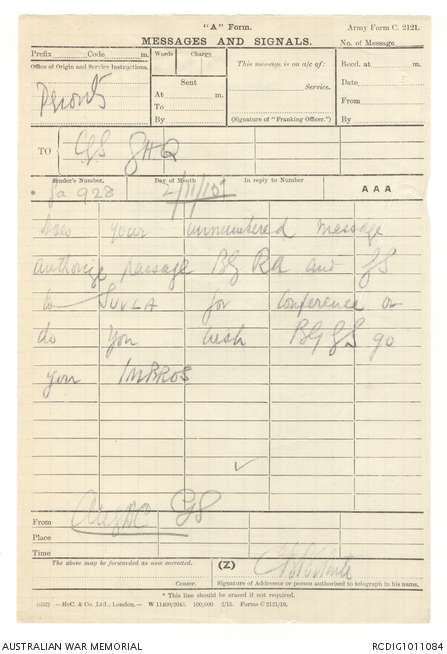 "A" Form.
Army Form C. 2121.
MESSAGES AND SIGNALS.
No. of Message
Prefix Code m.
Words
Charge
This message is on a/c of:
Recd. at m.
Office of Origin and Service Instructions.
Priority
Sent
Service.
Date
At m.
To
From
By
(Signature of "Franking Officer.")
By
TO
GS GHQ
Sender's Number.
Day of Month
In reply to Number
AAA
* Ga 928
2/11/15
Does your unnumbered message
authorize passage BG RA and GS
to SUVLA for conference or
do you wish BGGS go
IMBROS
From
GS
Place
Time
The above may be forwarded as now corrected.
(Z)
Censor.
Signature of Addressor or person authorised to telegraph in his name.
* This line should be erased if not required.
McC. & Co. Ltd., London.— W 11400/2045. 100,000 2/15. Forms C 2121/10.
AUSTRALIAN WAR MEMORIAL
RCDIG1011084